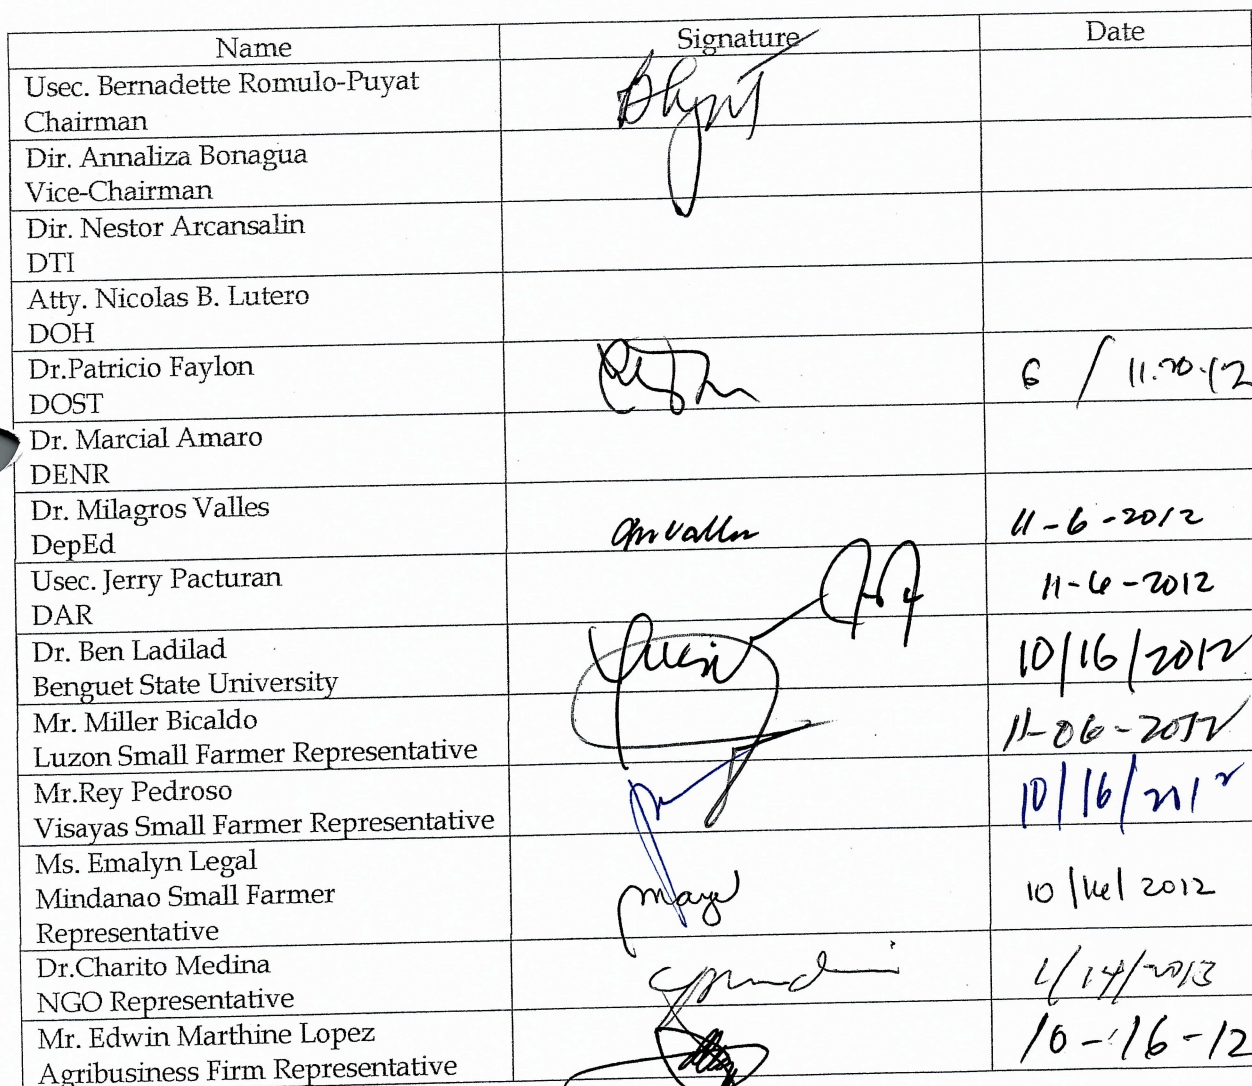 Name Signature Date
Usec. Bernadette Romulo-Puyat
Chairman
Dir. Annaliza Bonagua
Vice-Chairman
Dir. Nestor Arcansalin
DTI
Atty. Nicolas B. Lutero
DOH
Dr.Patricio Faylon
DOST
6 / 11.20.12
Dr. Marcial Amaro
DENR
Dr. Milagros Valles
DepEd
11-6-2012
Usec. Jerry Pacturan
DAR
11-6-2012
Dr. Ben Ladilad
Benguet State University
10/16/2012
Mr. Miller Bicaldo
Luzon Small Farmer Representative
11-06-2012
Mr.Rey Pedroso
Visayas Small Farmer Representative
10/16/2012
Ms. Emalyn Legal
Mindanao Small Farmer
Representative
10/16/2012
Dr.Charito Medina
NGO Representative
Mr. Edwin Marthine Lopez
Agribusiness Firm Representative
10-16-12